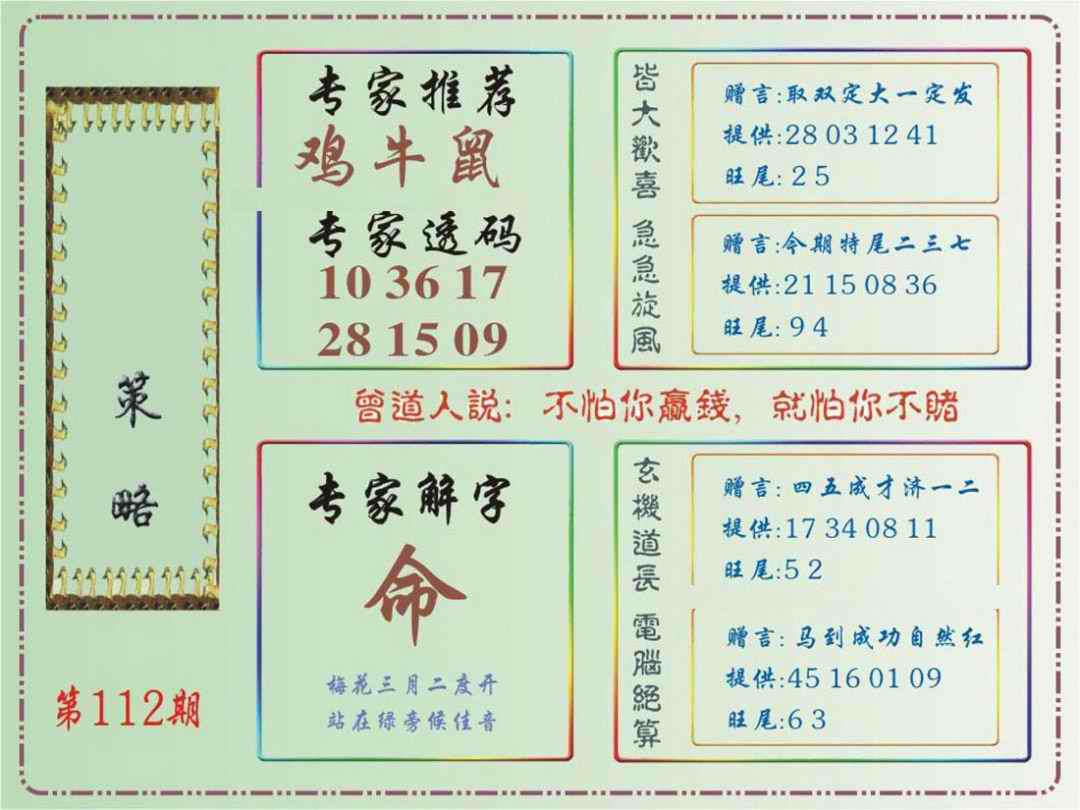 策略
第112期
专家推荐
鸡牛鼠
专家透码
10 36 17
28 15 09
皆大歡喜
赠言:取双定大一定发
提供:28 03 12 41
旺尾: 2 5
急急旋風
赠言:今期特尾二三七
提供:21 15 08 36
旺尾: 9 4
曾道人説: 不怕你贏錢, 就怕你不賭
专家解字
命
梅花三月二度开
站在绿旁候佳音
玄機道長
赠言: 四五成才济一二
提供:17 34 08 11
旺尾:5 2
電腦絕算
赠言: 马到成功自然红
提供:45 16 01 09
旺尾:6 3